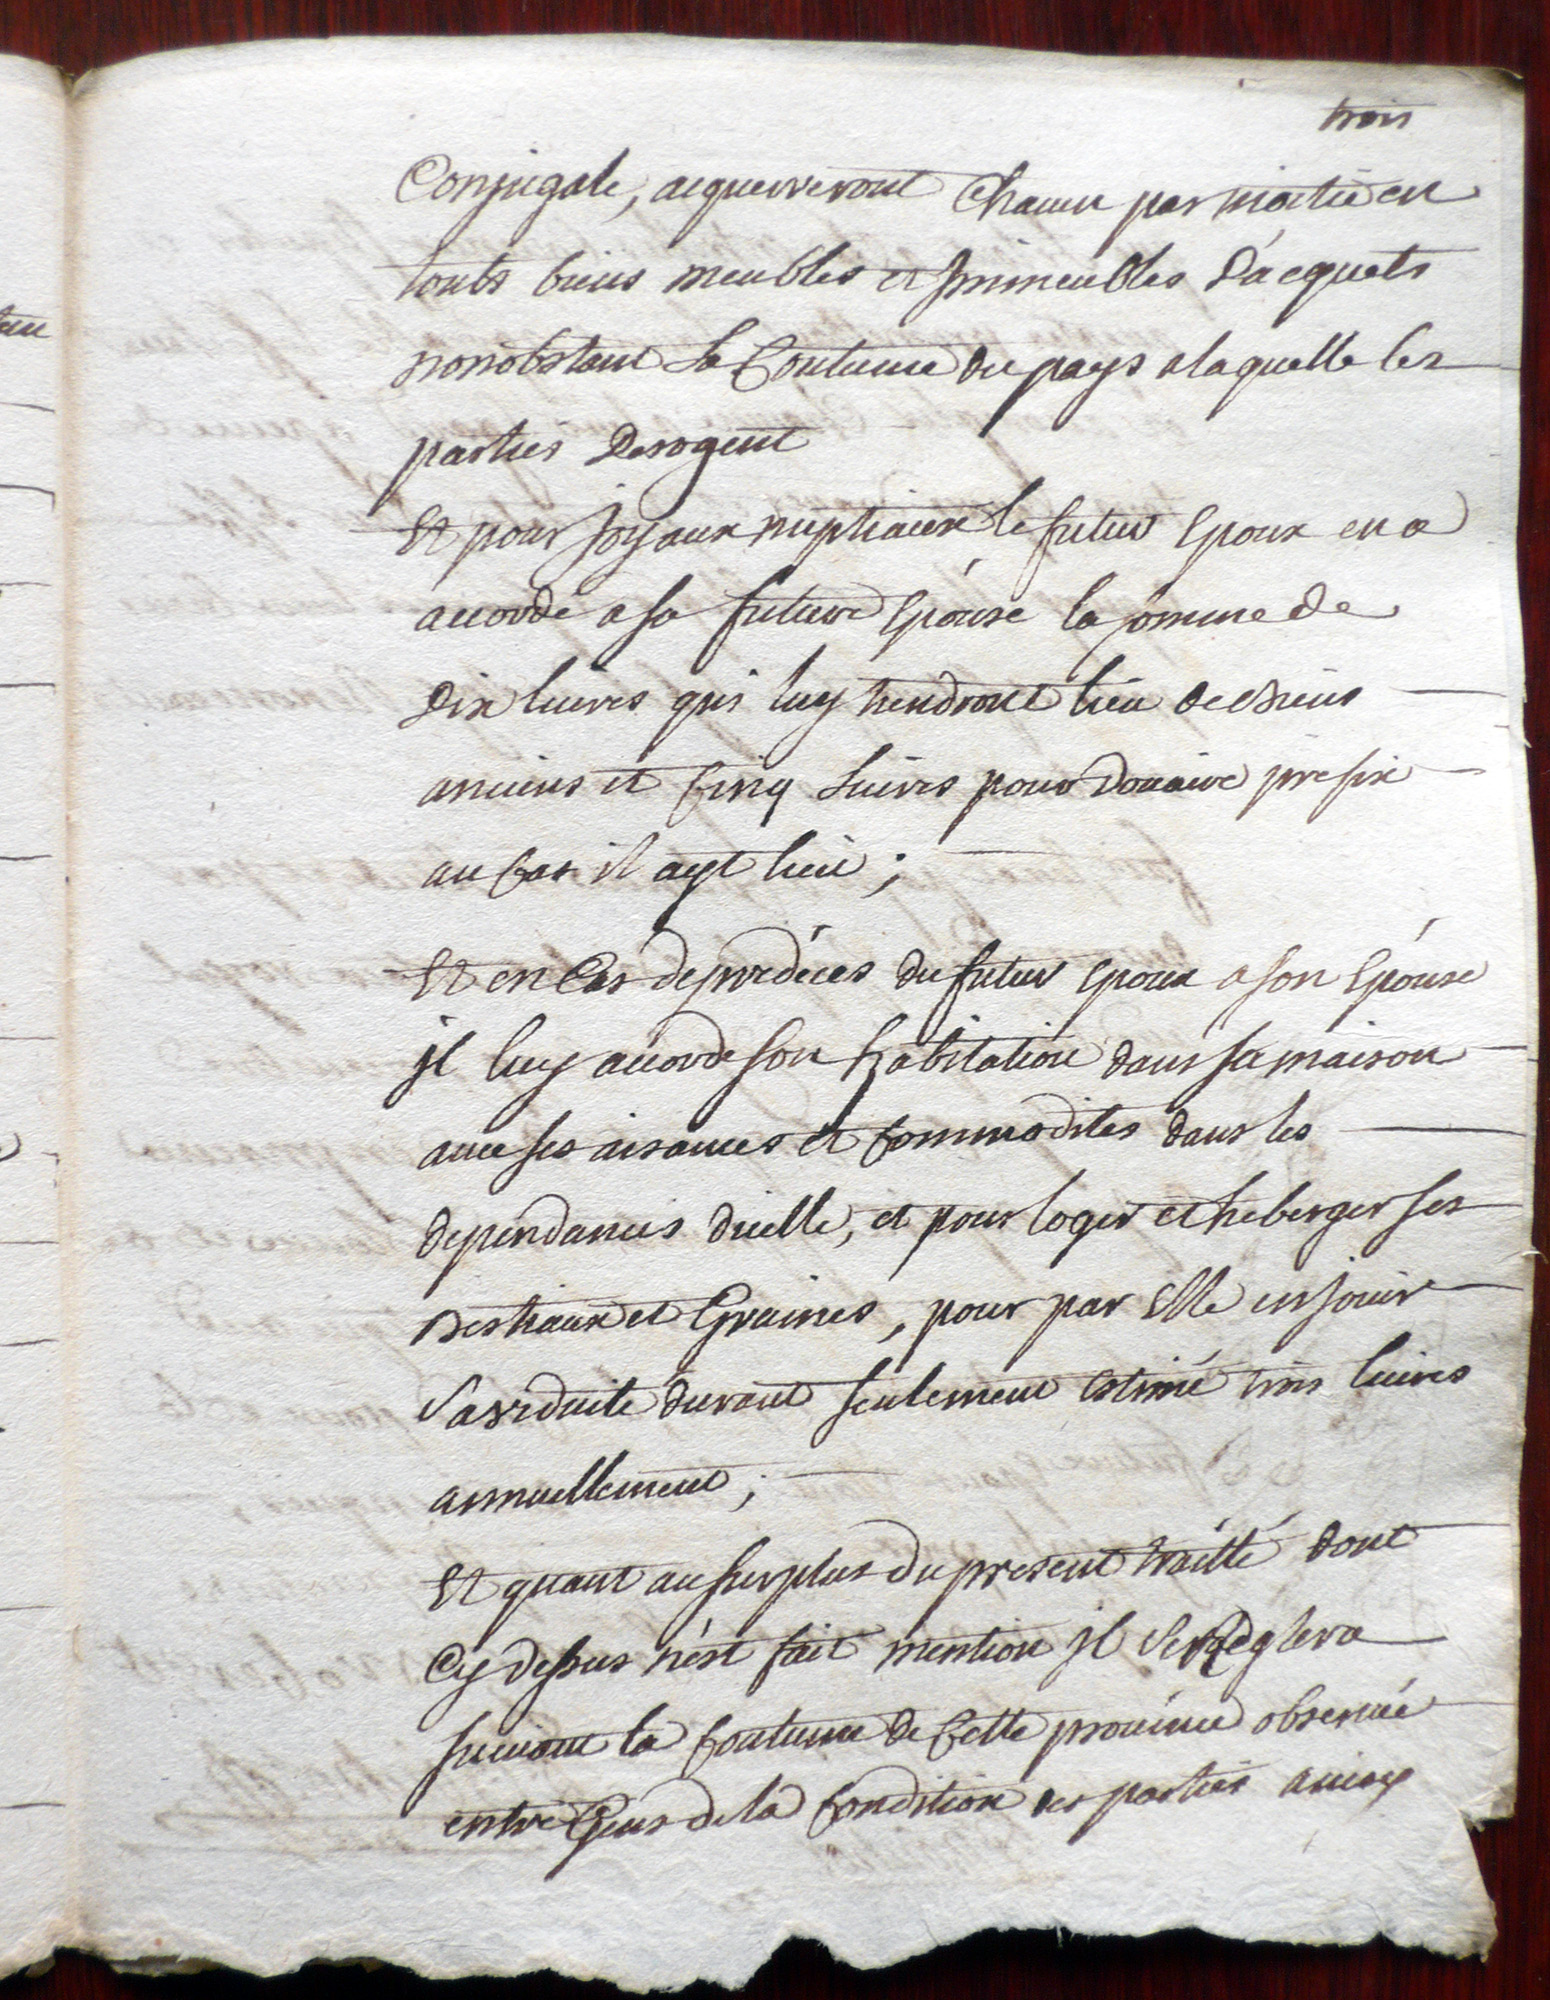 trois
Conjugale, acquerreront Chacun par moitié en
touts biens meubles et Jmmeubles D'acquets
nonobstant La Coutume du pays alaquelle les
parties Derogent
Et pour Joyaux nuptiaux le futur Epoux en a
accordé a sa future Epouse la somme de
Dix livres qui luy tiendront lieu de biens
anciens et Cinq Livres pour Douaire prefix
au Cas il ayt lieu ;
Et en Cas de predéces du futur epoux a son Epouse
jl luy accorde son habitation dans sa maison
avec ses aisances et Commodites dans les
dependances dicelle, et pour loger et heberger ses
Bestiaux et Graines, pour par Elle en jouir
Sa viduite durant seulement estimé trois livres
annuellement ;
Et quant au surplus du present traitté dont
Cy dessus n'est fait mention jl Se Reglera
suivant la Coutume de Cette province observée
entre Gens de la Condition des parties